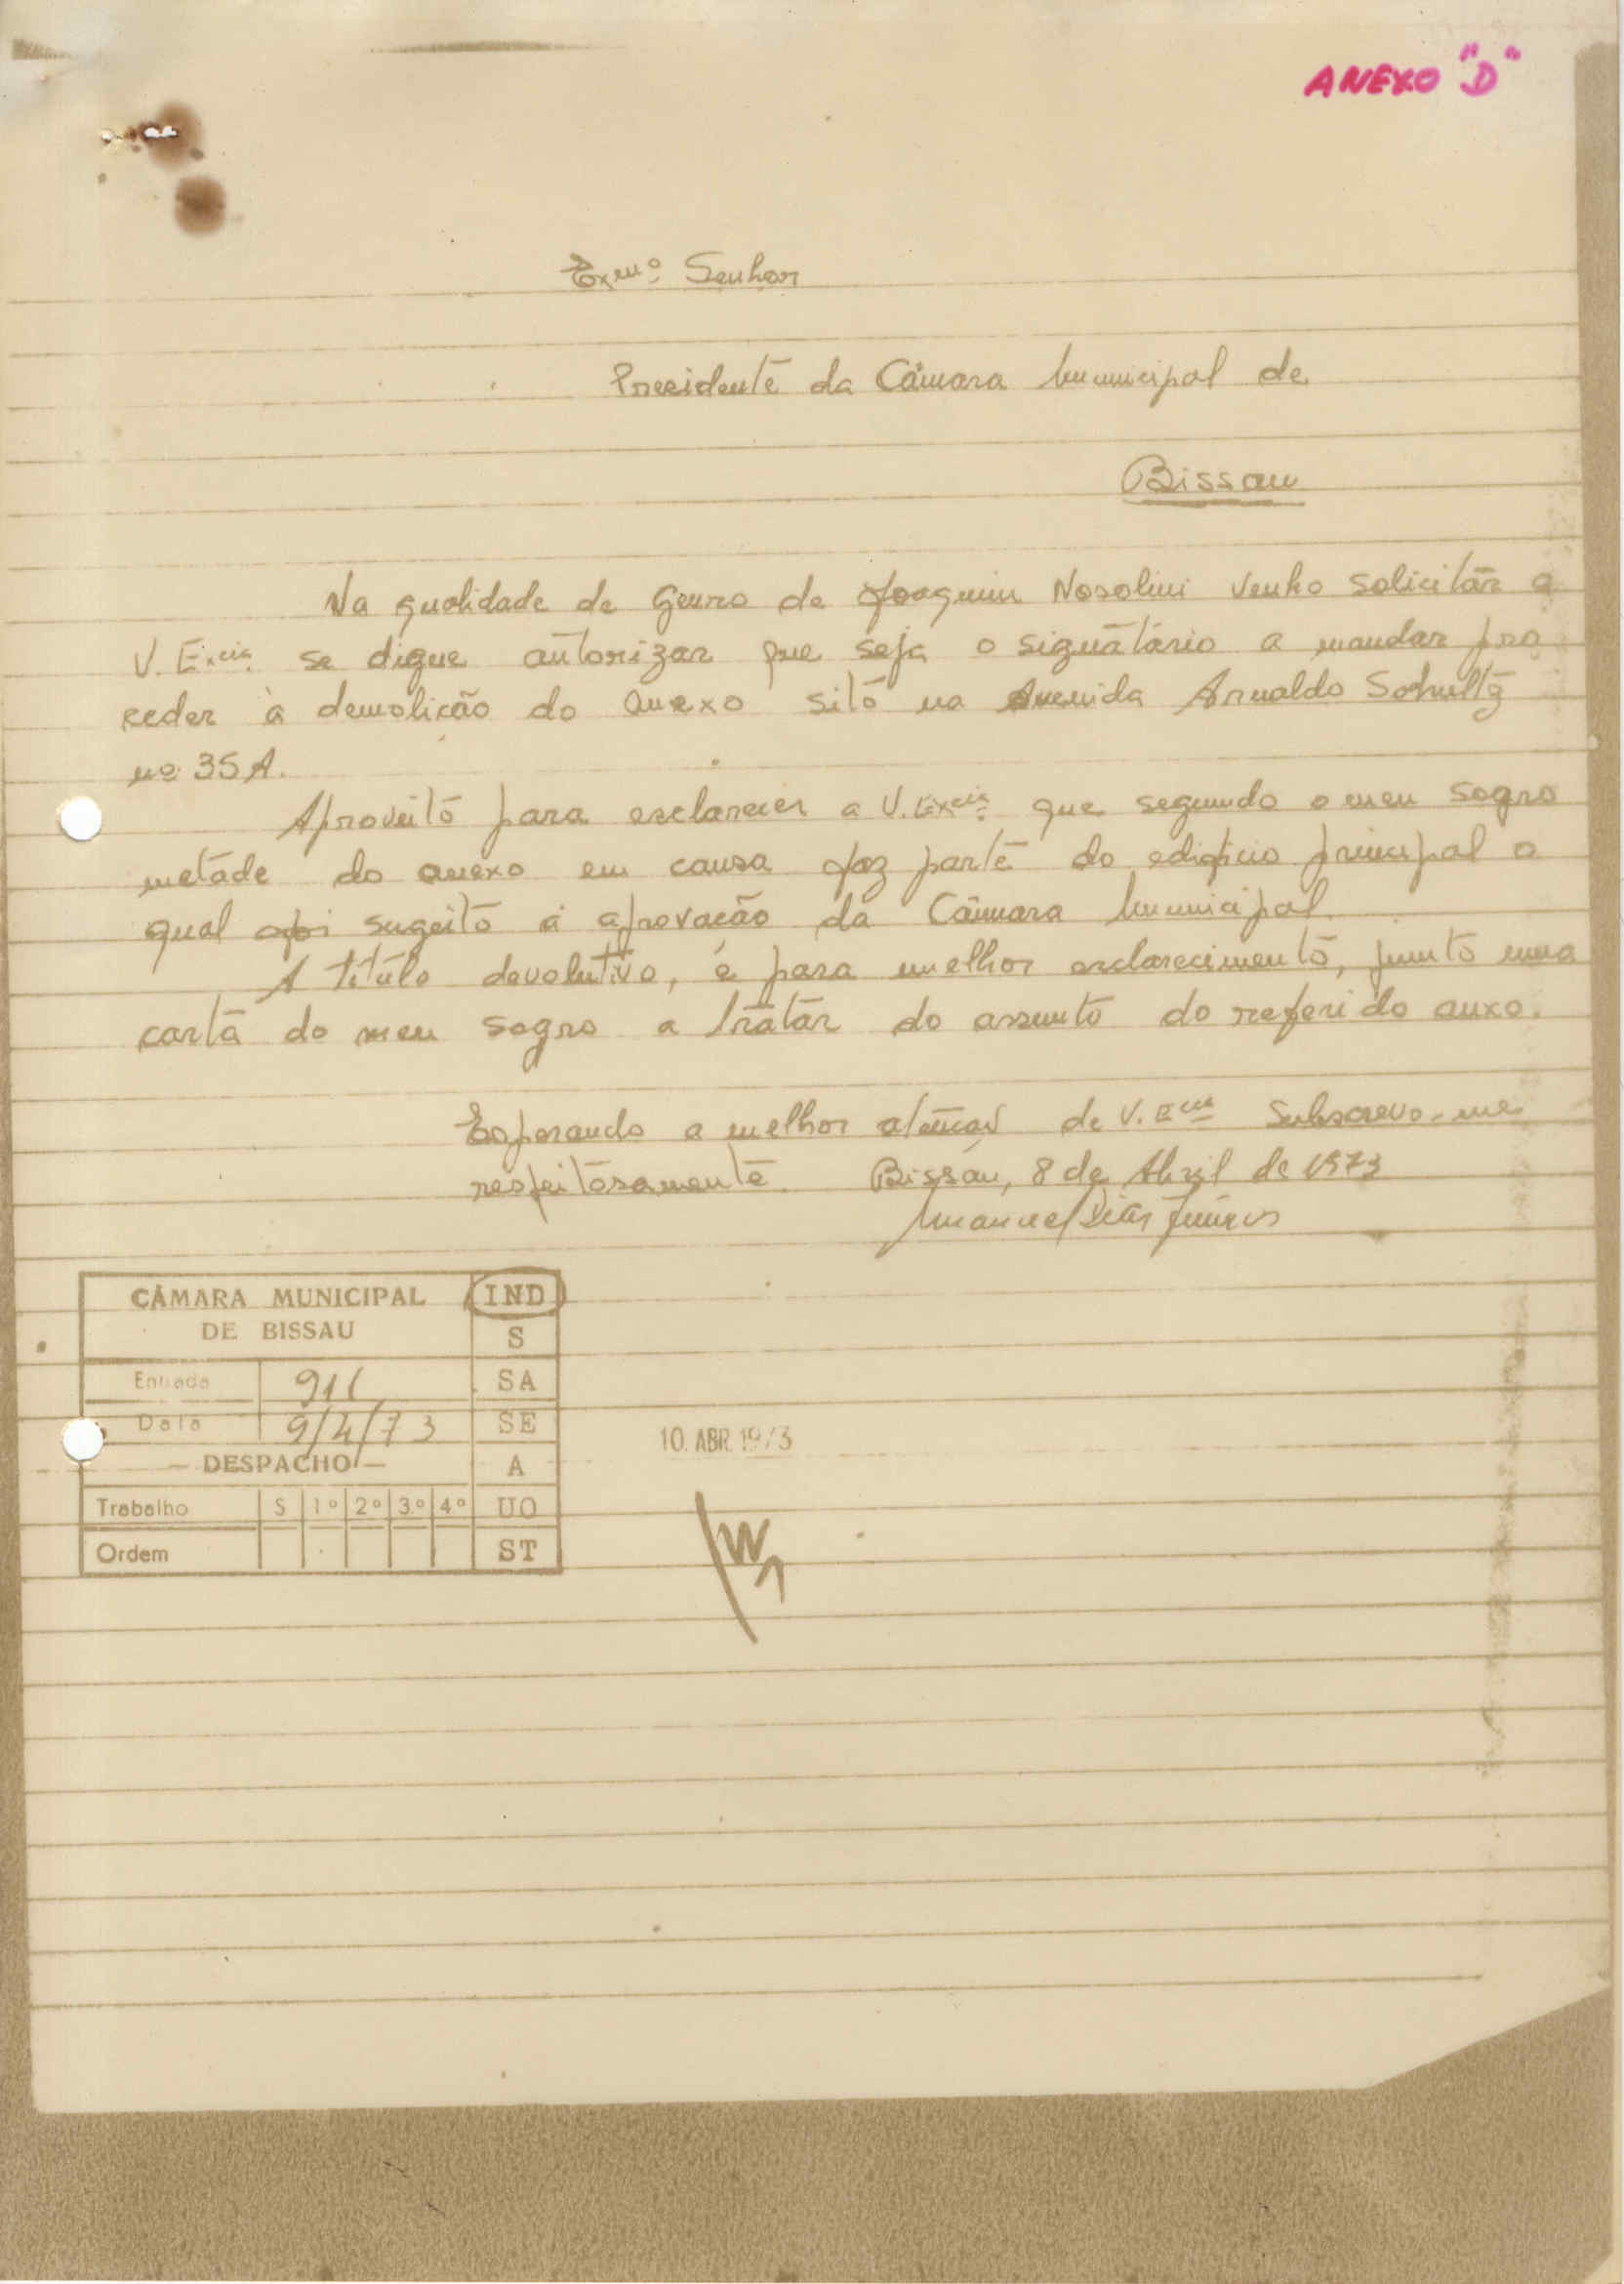 ANEXO "D"
Exmº Senhor
Presidente da Câmara Municipal de
Bissau
Na qualidade de Genro de Joaquim Nosolini venho solicitar a
V. Excia. se digne autorizar que seja o signatário a mandar pro
ceder à demolição do anexo sito na Avenida Arnaldo Schultz
nº 35A.
Aproveito para esclarecer a V. Excia. que segundo o meu sogro
metade do anexo em causa faz parte do edificio principal o
qual foi sugeito á aprovação da Câmara Municipal.
A titulo devolutivo, e para melhor esclarecimento, junto uma
carta do meu sogro a tratar do assunto do referido auxo.
Esperando a melhor atenção de V. Ecia Subscrevo-me
respeitosamente. Bissau, 8 de Abril de 1973
Manuel Dias
CÂMARA MUNICIPAL IND
DE BISSAU S
Entrada 911 SA
Data 9/4/73 SE
— DESPACHO — A
Trabalho S 1º 2º 3º 4º UO
Ordem ST
10. ABR. 1973